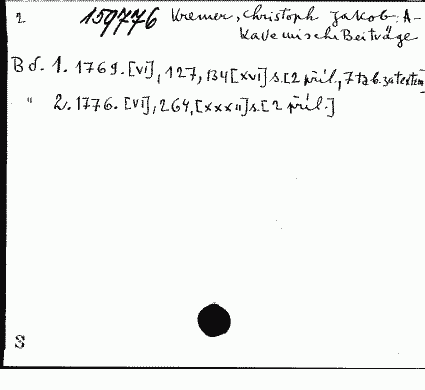 2. 159776 Kremer, Christoph Jakob: A-
kademische Beiträge
Bd. 1. 1769. [VI], 127, 134 [XVI] s. [2 příl., 7 tab. za textem
" 2. 1776. [VI], 264, [XXXII] s. [2 příl.]
S